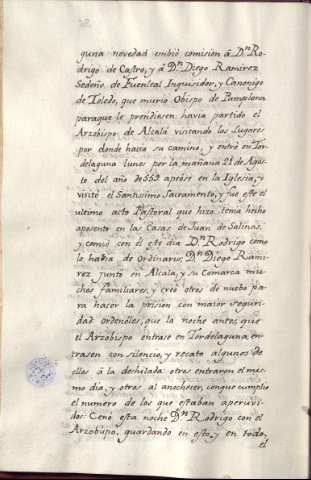 guna novedad embió comision á D.n Ro-
drigo de Castro, y á D.n Diego Ramirez
Sedeño de Fuenleal Inquisidor, y Canonigo
de Toledo, que murió Obispo de Pamplona
paraque le prendiesen havia partido el
Arzobispo de Alcalá visitando los Lugares
por donde havia su camino, y entró en Tor-
delaguna lunes por la mañana 21 de Agos-
to del año de 559 apeóse en la Iglesia, y
visitó el Santissimo Sacramento, y fue este el
ultimo acto Pastoral que hizo. tenia hecho
aposento en las Casas de Juan de Salinas,
y comió con el este dia D.n Rodrigo como
lo havia de ordinario, D.n Diego Rami-
rez juntó en Alcalá, y su Comarca mu-
chos familiares, y creó otros de nuebo pa-
ra hacer la prision con maior seguri-
dad ordenóles, que la noche antes, que
el Arzobispo entrase en Tordelaguna en-
trasen con silencio, y recato algunos de
ellos á la deshilada: otros entraron el mis-
mo dia, y otros al anochecer, conque cumplio
el numero de los que estaban apercivi-
dos: Cenó esta noche D.n Rodrigo con el
Arzobispo, guardando en esto, y en todo,
el